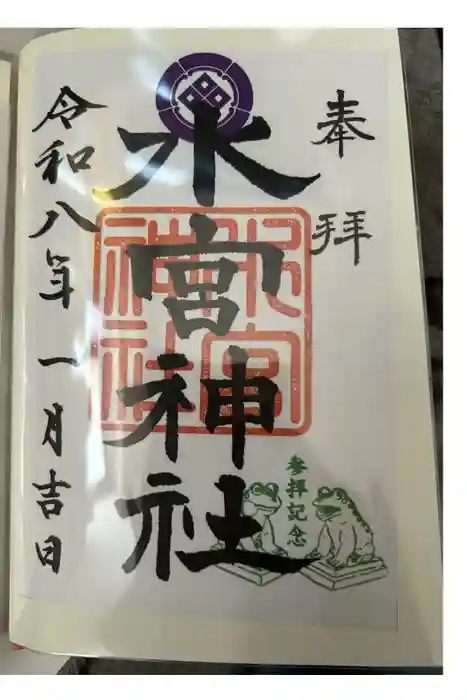 奉拝
水宮神社
水宮神社
参拝記念
令和八年一月吉日